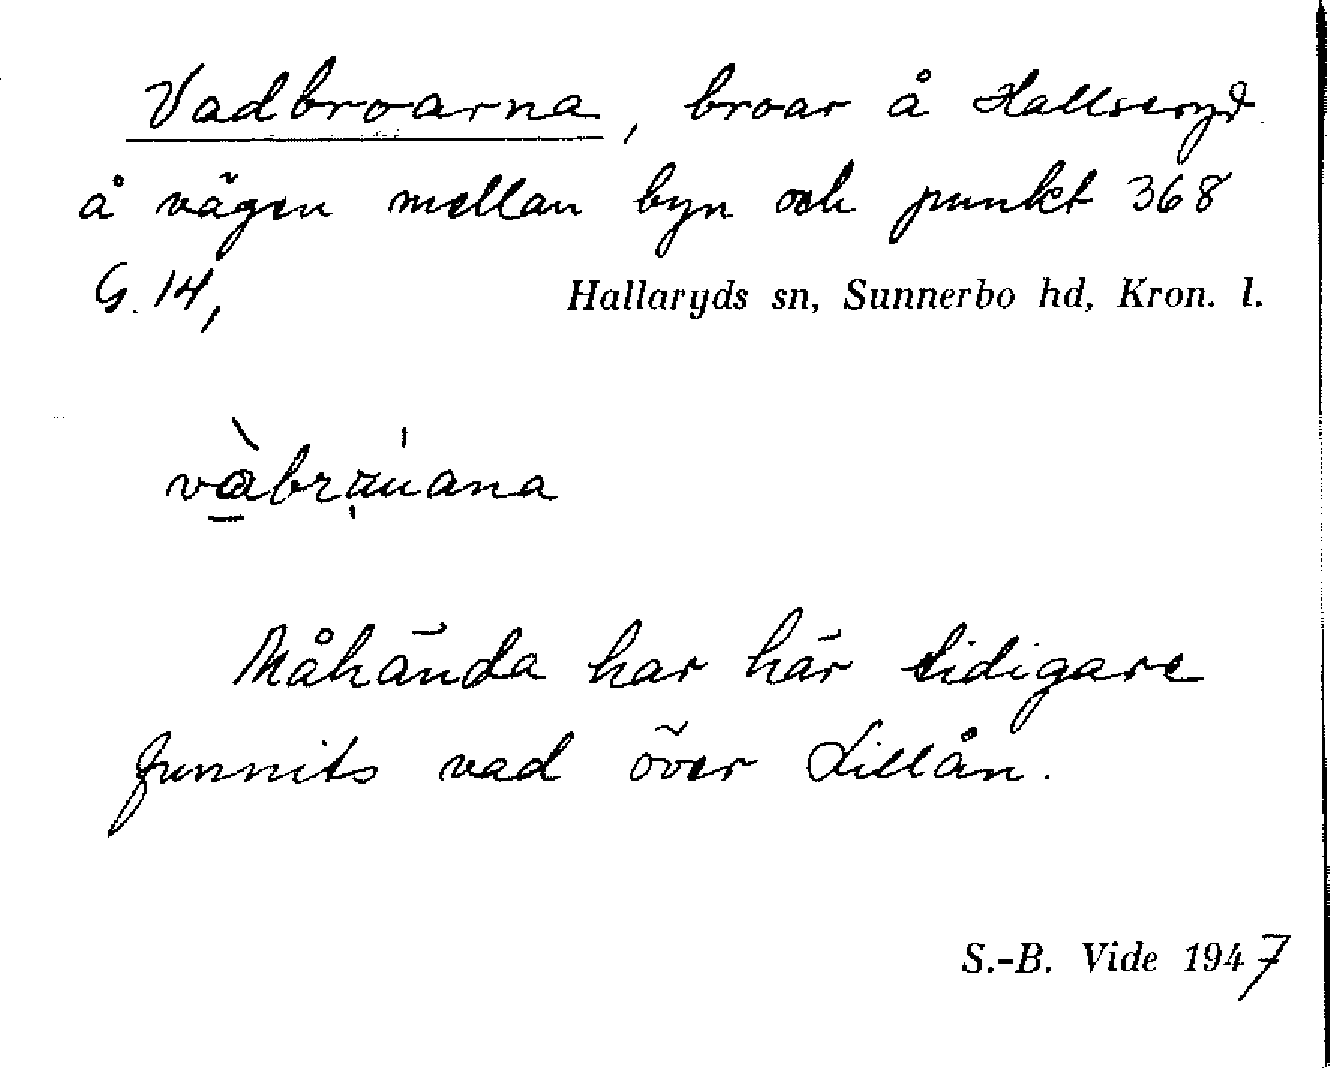 Vadbroarna, broar å Hallseryd
å vägen mellan byn och punkt 368
G. 14, Hallaryds sn, Sunnerbo hd, Kron. l.
Måhända har här tidigare
funnits vad över Lillån.
S.-B. Vide 1947